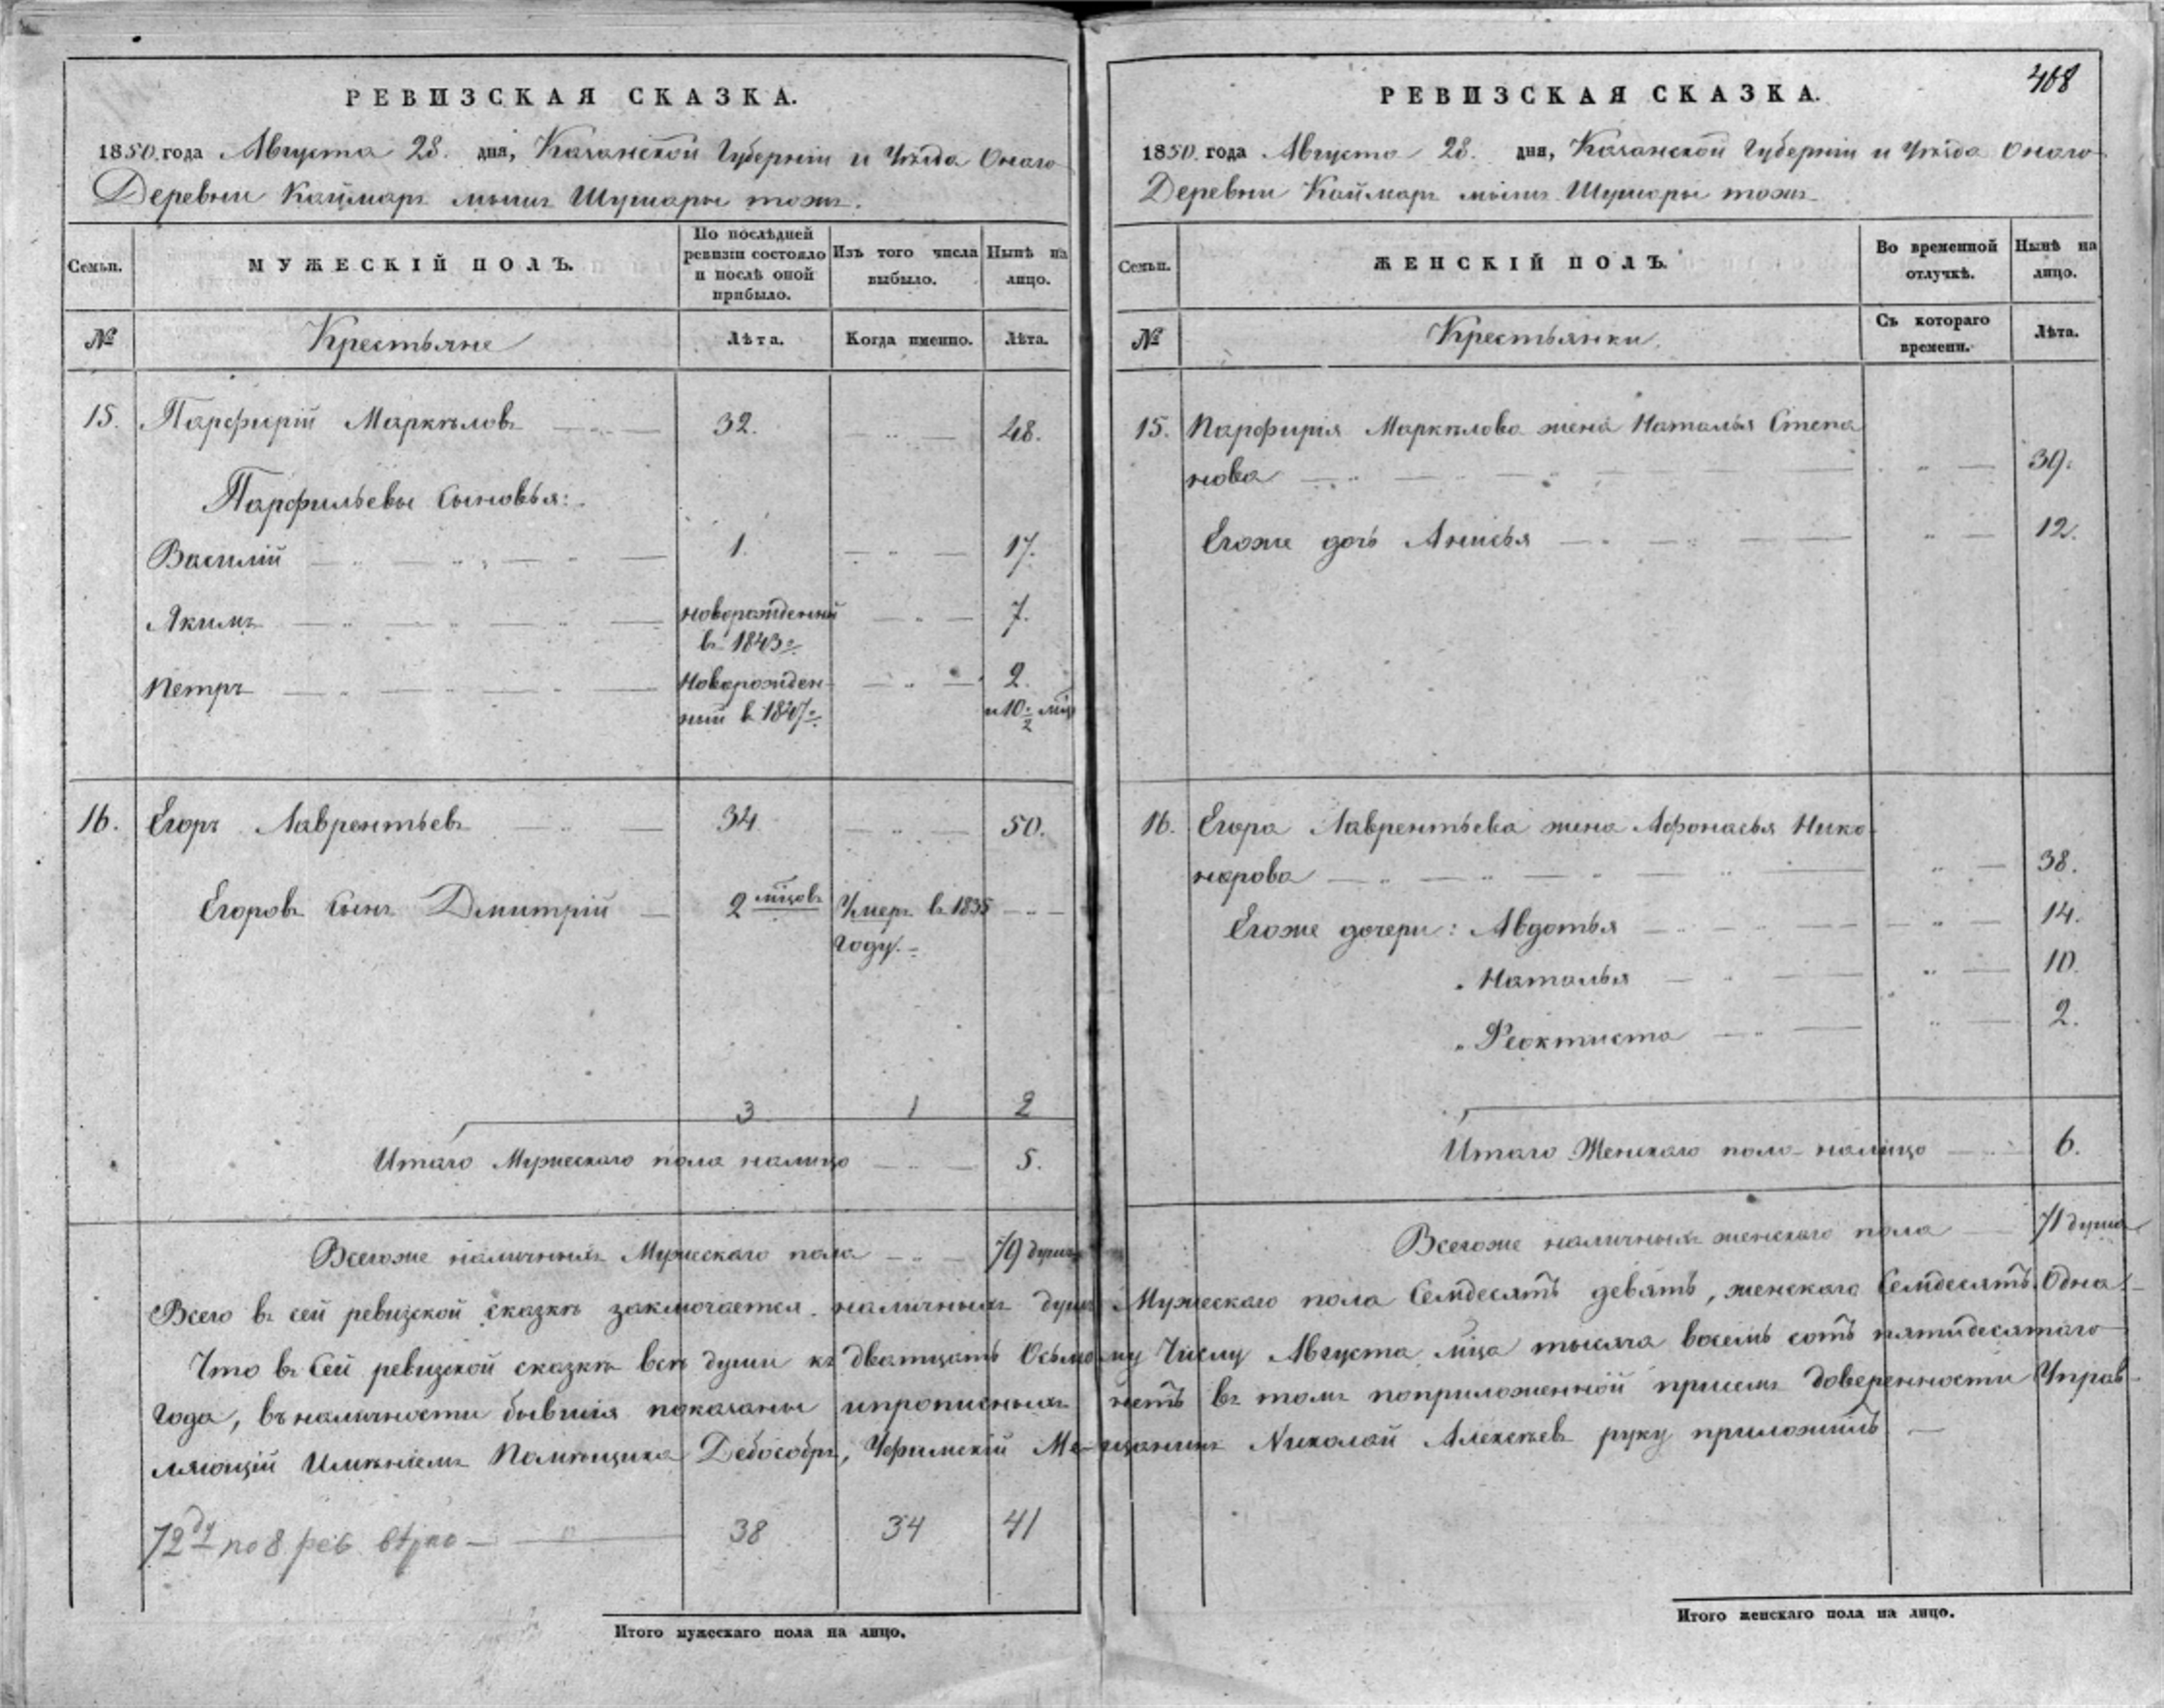 РЕВИЗСКАЯ СКАЗКА.
1850. года Августа 28. дня, Казанской Губерніи и Уѣзда Онаго
Деревни Каймаръ мысъ Шушары тожъ.
Семьи.
МУЖЕСКІЙ ПОЛЪ.
По послѣдней ревизіи состояло и послѣ оной прибыло.
Изъ того числа выбыло.
Нынѣ на лицо.
№
Крестьяне
Лѣта.
Когда именно.
Лѣта.
15. Парфирій Маркѣловъ 32. 48.
Парфильевы Сыновья:
Василій 1. 17.
Якимъ новорожденный 7.
въ 1843
Петръ Новорожден- 2.
ный в 1847 и 10 мцъ
16. Егоръ Лаврентьевъ 34. 50.
Егоровъ Сынъ Дмитрій 2 мцовъ Умеръ въ 1835
году.
3 1 2
Итаго Мужескаго пола налицо 5.
Всегоже наличныхъ Мужескаго пола 79 душъ
72 ду по 8 рев 38 34 41
Итого мужескаго пола на лицо.
408
РЕВИЗСКАЯ СКАЗКА.
1850. года Августа 28. дня, Казанской Губерніи и Уѣзда Онаго
Деревни Каймаръ мысъ Шушары тожъ
Семьи.
ЖЕНСКІЙ ПОЛЪ.
Во временной отлучкѣ.
Нынѣ на лицо.
№
Крестьянки.
Съ котораго времени.
Лѣта.
15. Парфирія Маркѣлова жена Наталья Степа
нова 39.
Егоже дочь Анисья 12.
16. Егора Лаврентьева жена Афонасья Нико-
норова 38.
Егоже дочери: Авдотья 14.
Наталья 10.
Феоктиста 2.
Итаго Женскаго пола налицо 6.
Всегоже наличныхъ женскаго пола 71 душа
Всего въ сей ревизской сказкѣ заключается наличныхъ душъ Мужескаго пола Семдесятъ девять, женскаго Семдесятъ Одна.
Что въ Сей ревизской сказкѣ всѣ души къ дватцать Осьмому Числу Августа мца тысяча восемь сотъ пятидесятаго
года, въ наличности бывшія показаны и прописныхъ нетъ въ томъ поприложенной присемъ доверенности Управ-
ляющій Имѣніемъ Помѣщика Дебособръ, Уфимскій Мещанинъ Николай Алексѣевъ руку приложилъ
Итого женскаго пола на лицо.